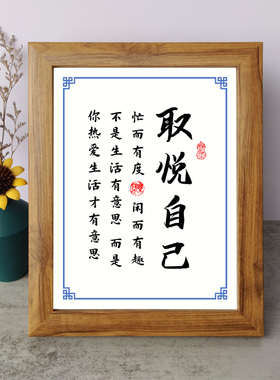 取悦自己
忙而有度 闲而有趣
不是生活有意思 而是
你热爱生活才有意思